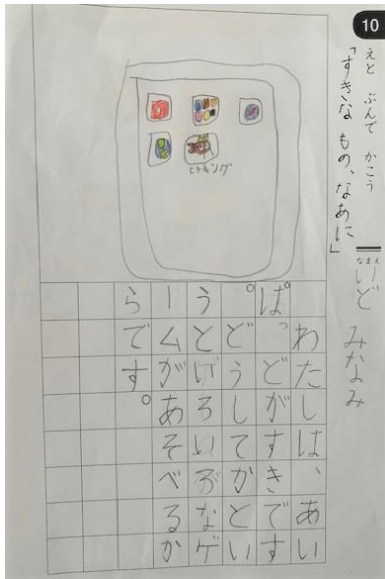 10
えと ぶんで かこう
「すきな もの、なあに」
なまえ
いど みなみ
わたしは、あい
ぱっどがすきです
。どうしてかとい
うといろいろなゲ
ームがあそべるか
らです。